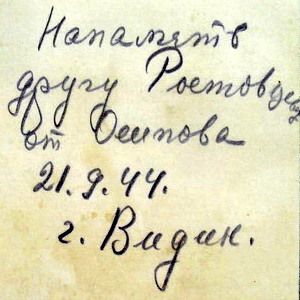 Напамять
другу Ростовцеву
от Осипова
21.9.44.
г. Видин.